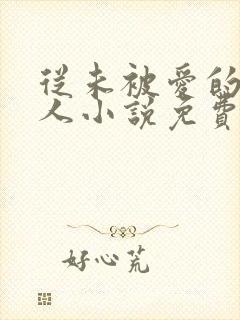 從未被愛的
人小說免費
好心荒